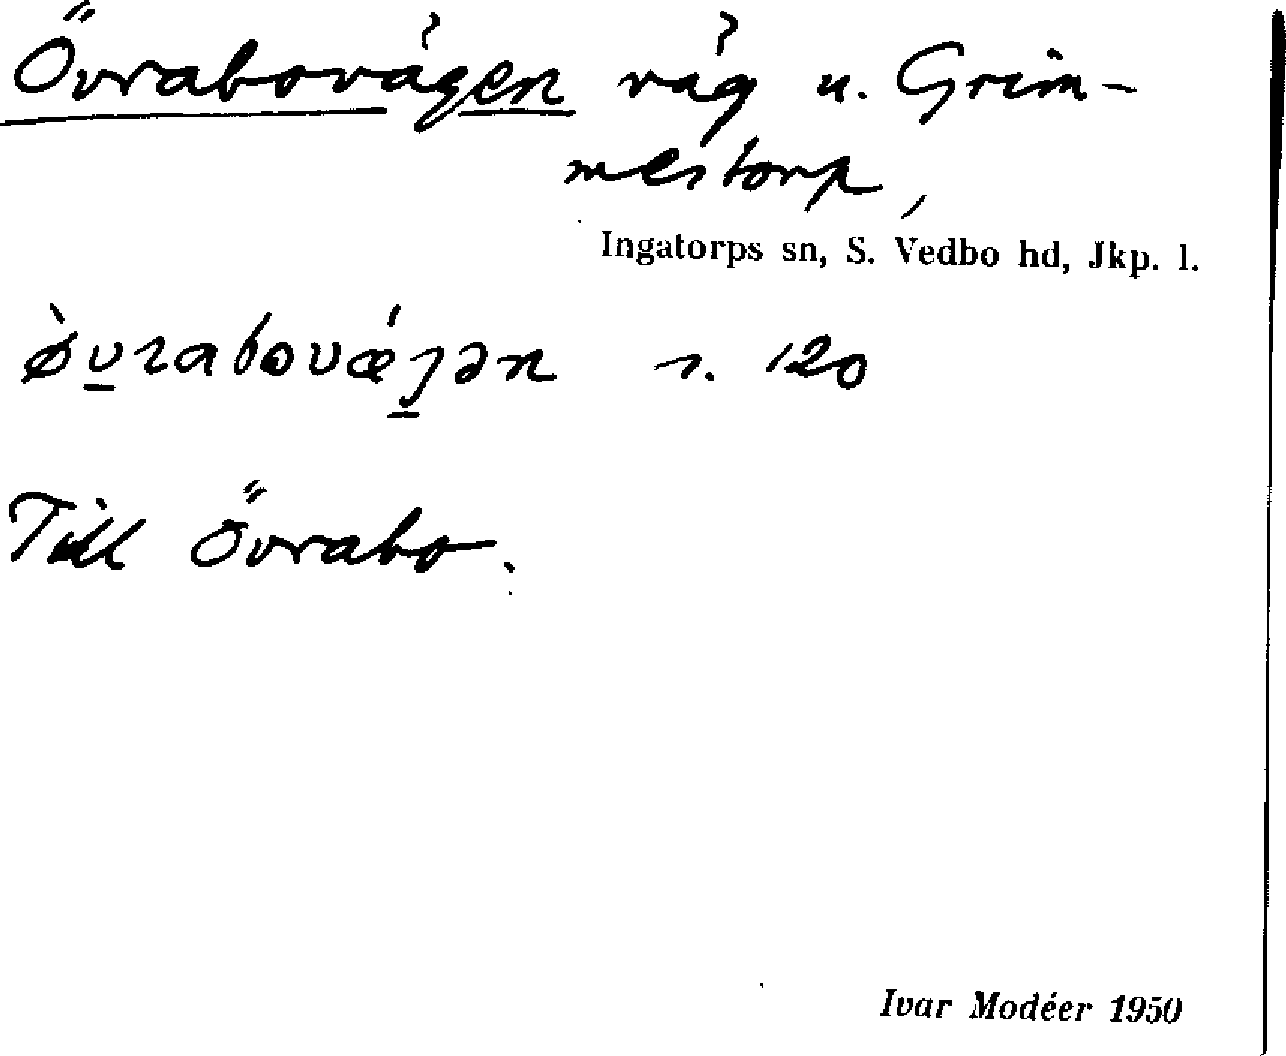 Övrabovägen väg u. Grim-
mestorp,
Ingatorps sn, S. Vedbo hd, Jkp. l.
ø̀v̱rabovǽɟ̱ən s. 120
Till Övrabo.
Ivar Modéer 1950